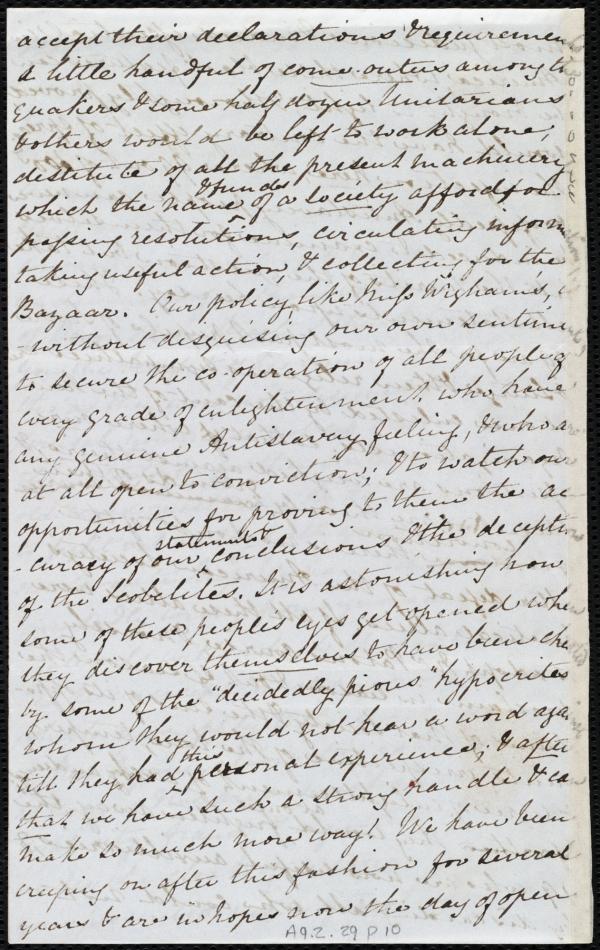 accept their declarations & requiremen
a little handful of come-outers among
Quakers & some half dozen Unitarians
& others would be left to work alone,
destitute of all the present machinery
& funds
which the name of a society affords, or
passing resolutions, circulating inform
taking useful action, & collecting for the
Bazaar. Our policy, like Miss Wigham's,
- without disguising our own sentime
to secure the co-operation of all people of
every grade of enlightenment who have
any genuine Antislavery feeling, & who a
at all open to conviction; & to watch our
opportunities for proving to them the ac
statements &
-curacy of our conclusions & the decepti
of the Scobelites. It is astonishing how
some of these people's eyes get opened whe
they discover themselves to have been che
by some of the "decidedly pious" hypocrites
whom they would not hear a word aga
this
till they had personal experience; & after
that we have such a strong handle & ca
make so much more way! We have been
creeping on after this fashion for several
years & are in hopes now the day of open
A9.2.29 p10